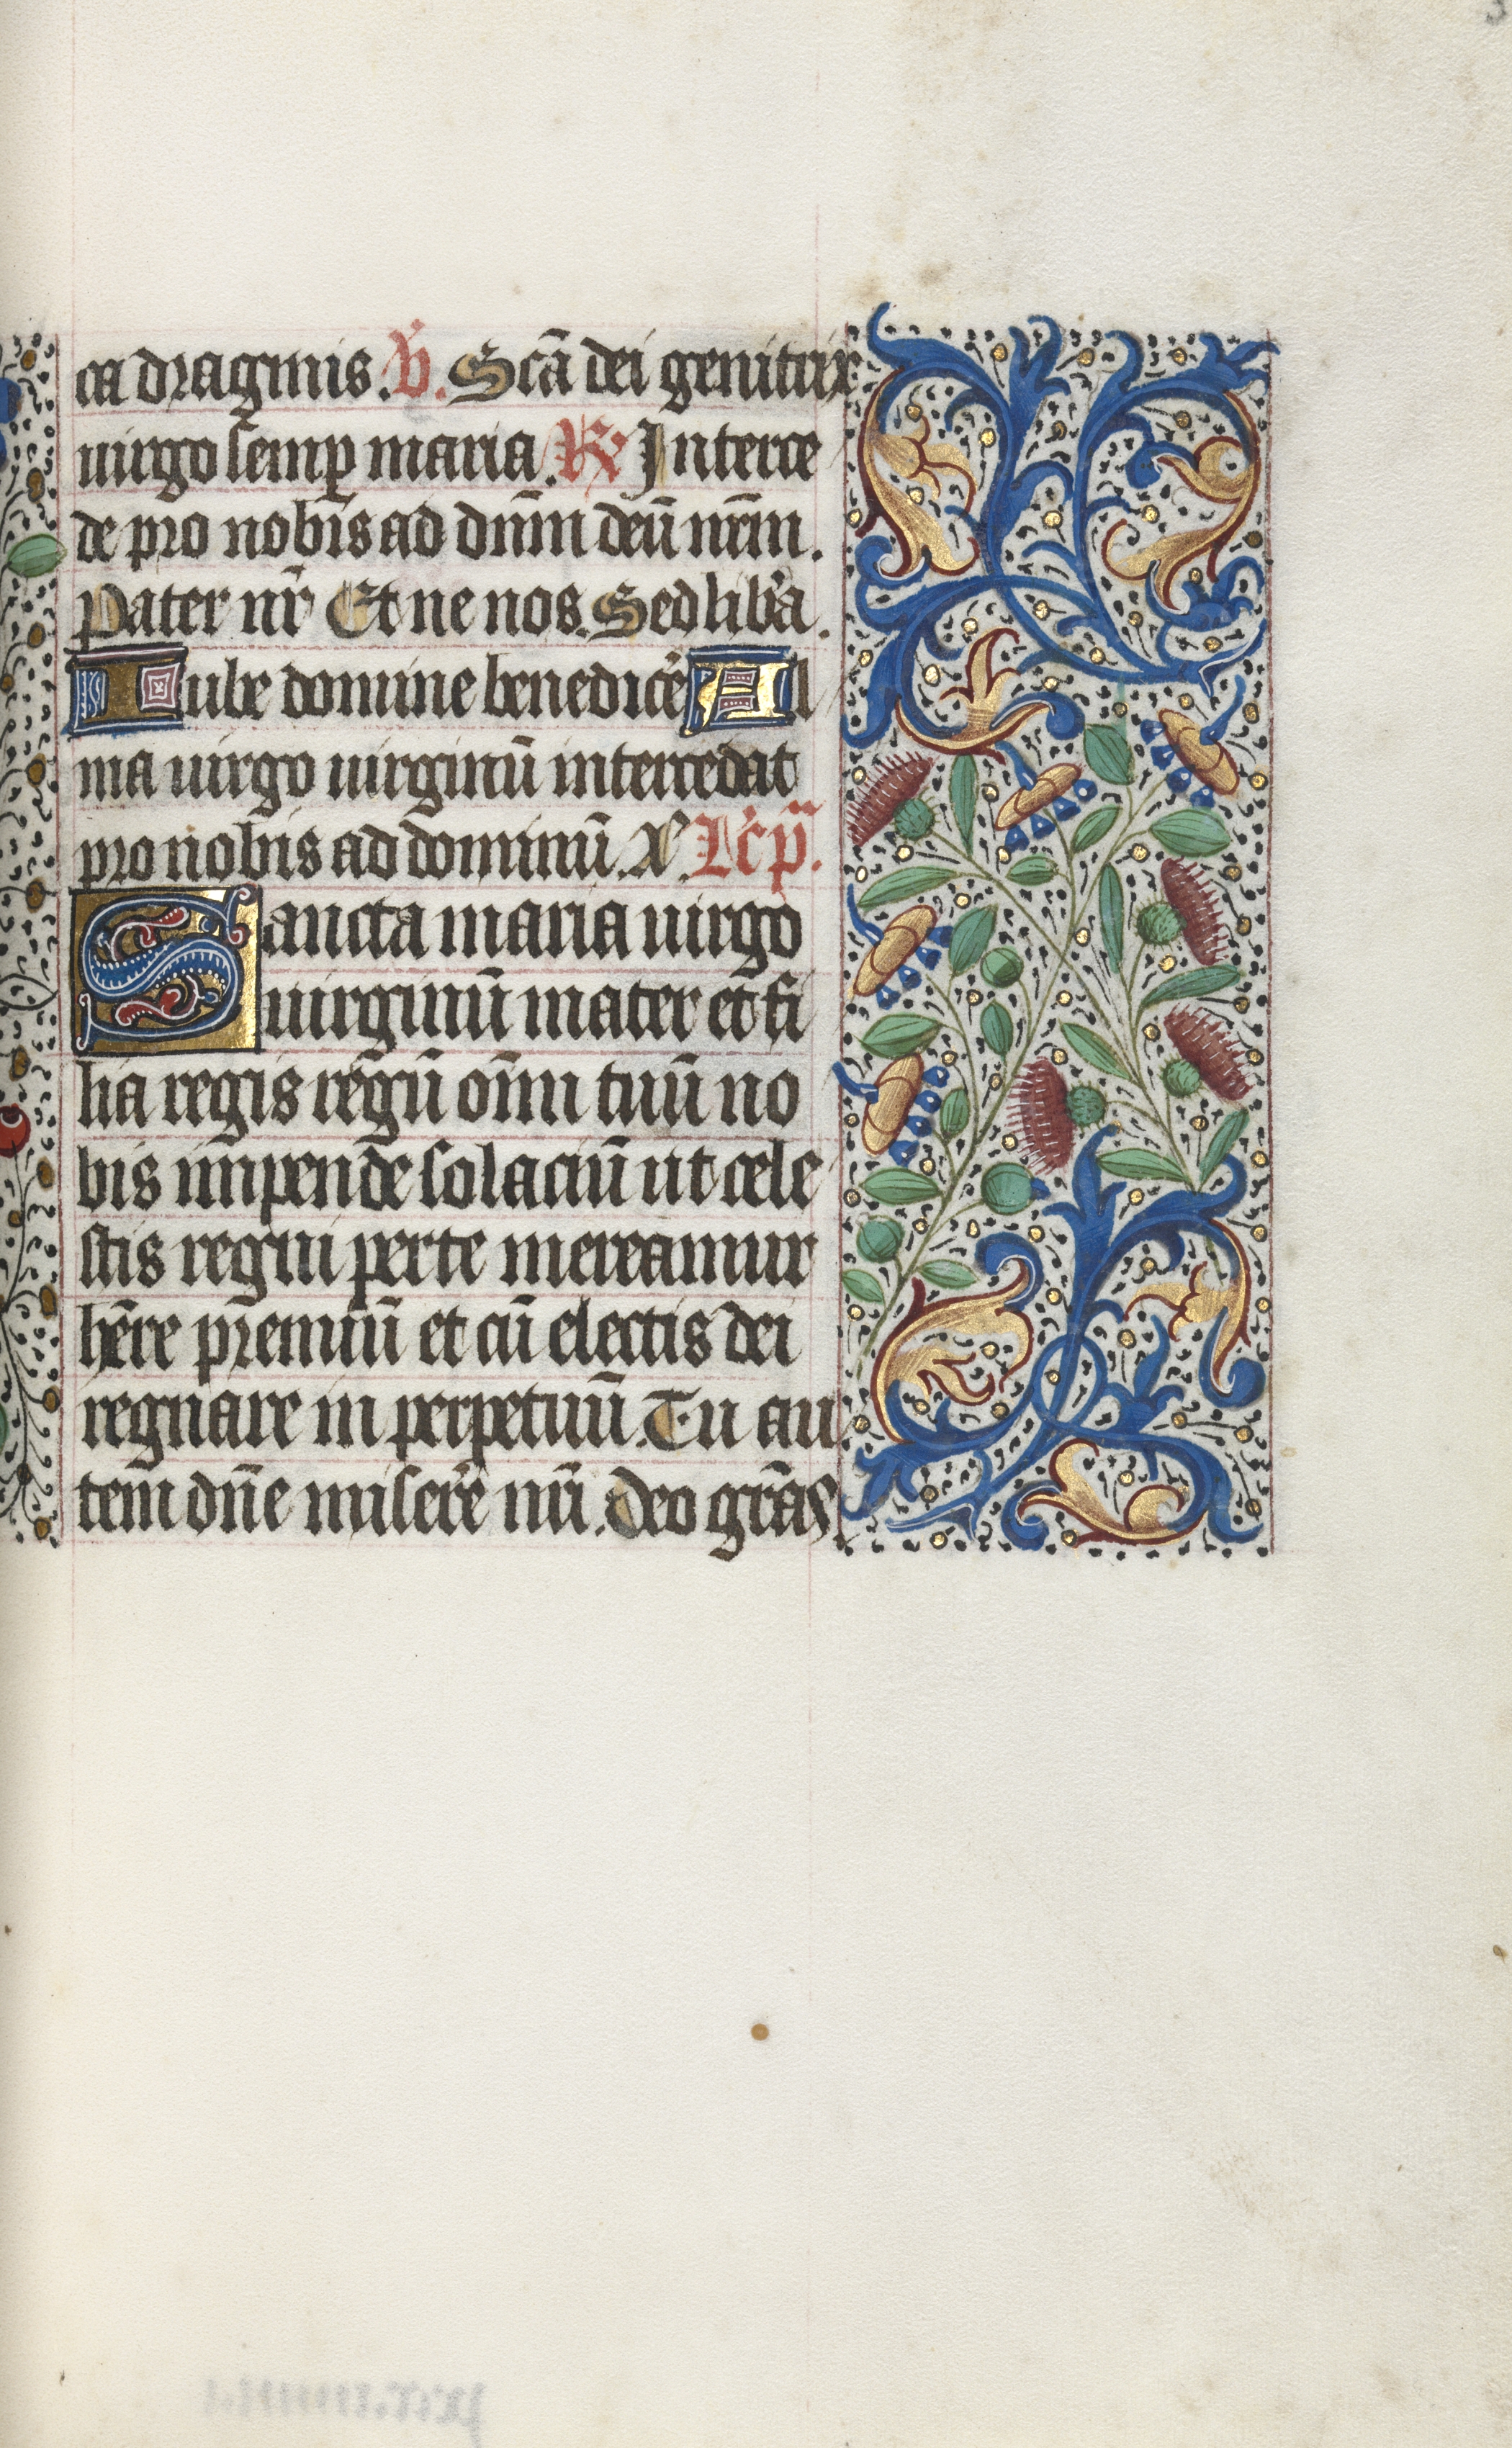 ca dragmis. V̄. Scā dei genitrix
uirgo semp̱ maria. R̷ Interce
de pro nob̄is ad dn̄m deū nr̄m.
Pater nr̄ Et ne nos. Sed lib̄a.
Iube domine benedicē Al
ma uirgo uirginū intercedat
pro nobis ad dominū. X. Lc̄ p̄.
Sancta maria uirgo
uirginū mater et fi
lia regis regū om̄i tuū no
bis impende solaciū ut cele
stis regni per te mereamur
hēre premiū et cū electis dei
regnare in perpetuū. Tu au
tem dn̄e miserē nr̄i. Deo grās.